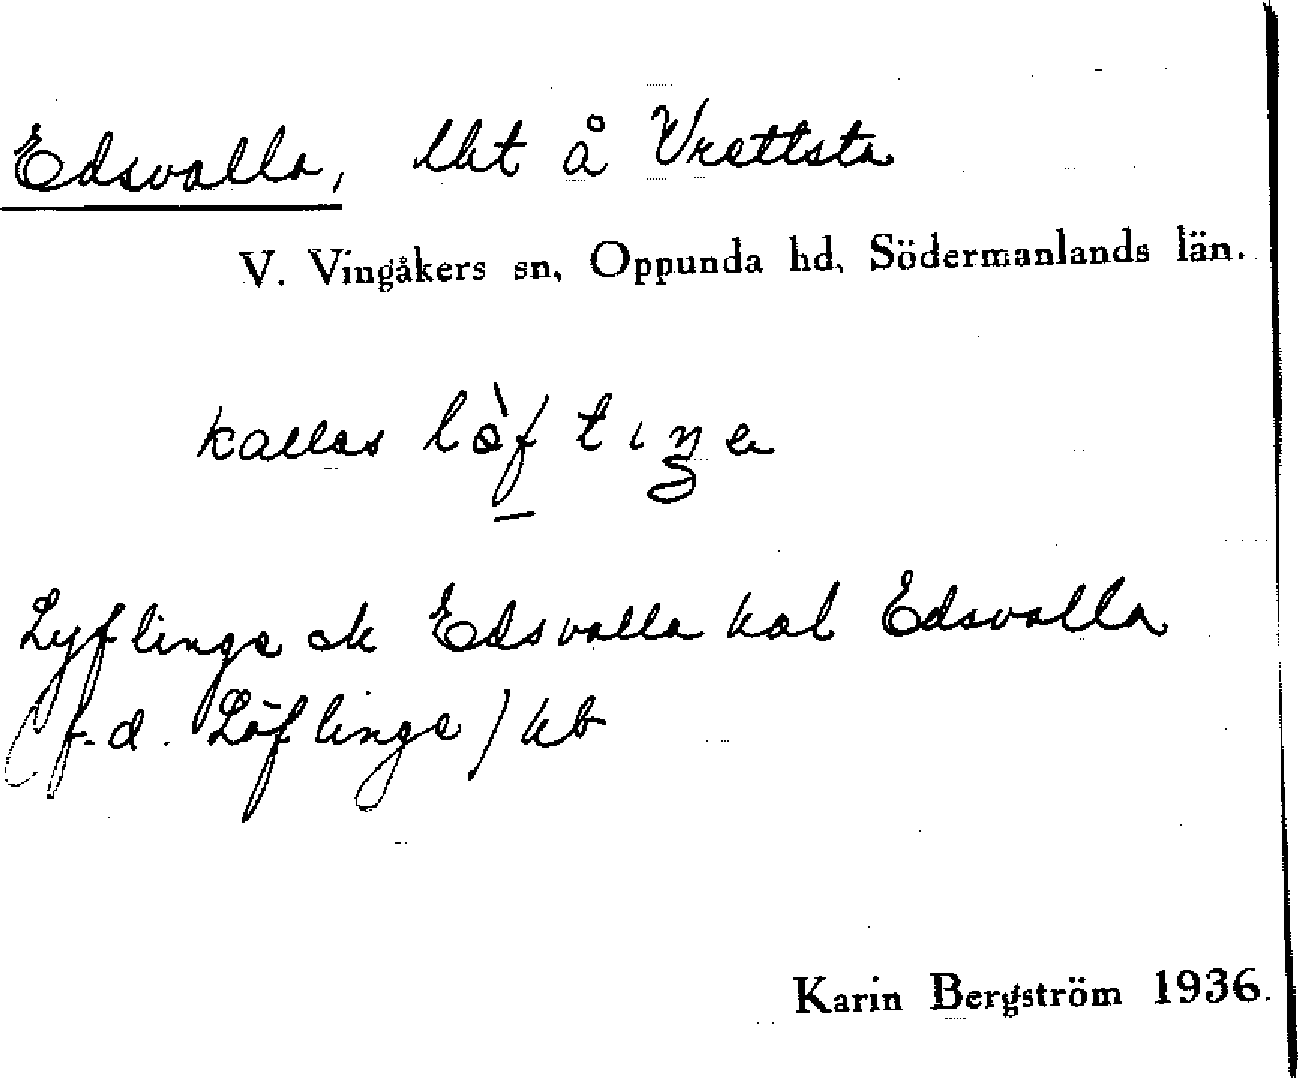 Edsvalla, lht å Vrettsta
V. Vingåkers sn, Oppunda hd, Södermanlands län.
kallas
Lyflinge ok Edsvalla kal Edsvalla
f.d. Löflinge / kb
Karin Bergström 1936.